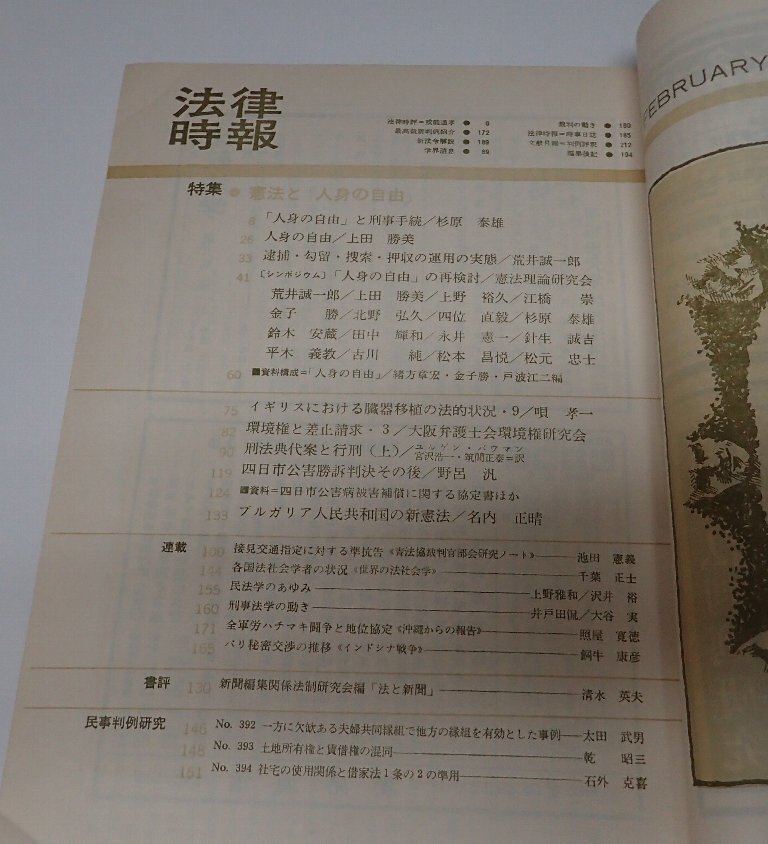 法律
時報
法律時評＝戒能通孝 ● 6
最高裁新判例紹介 ● 172
新法令解説 ● 189
学界消息 ● 89
裁判の動き ● 180
法律時報＝時事日誌 ● 185
文献月報＝判例評釈 ● 212
編集後記 ● 194
FEBRUARY
特集 ● 憲法と「人身の自由」
8 「人身の自由」と刑事手続／杉原 泰雄
26 人身の自由／上田 勝美
33 逮捕・勾留・捜索・押収の運用の実態／荒井誠一郎
41 〔シンポジウム〕「人身の自由」の再検討／憲法理論研究会
荒井誠一郎／上田 勝美／上野 裕久／江橋 崇
金子 勝／北野 弘久／四位 直毅／杉原 泰雄
鈴木 安蔵／田中 輝和／永井 憲一／針生 誠吉
平木 義教／古川 純／松本 昌悦／松元 忠士
60 ■資料構成＝「人身の自由」／緒方章宏・金子勝・戸波江二編
75 イギリスにおける臓器移植の法的状況・9／唄 孝一
82 環境権と差止請求・3／大阪弁護士会環境権研究会
90 刑法典代案と行刑（上）／ユルゲン・バウマン 宮沢浩一・筑間正泰＝訳
119 四日市公害勝訴判決その後／野呂 汎
124 ■資料＝四日市公害病被害補償に関する協定書ほか
133 ブルガリア人民共和国の新憲法／名内 正晴
連載 100 接見交通指定に対する準抗告《青法協裁判官部会研究ノート》── 池田 憲義
144 各国法社会学者の状況《世界の法社会学》── 千葉 正士
155 民法学のあゆみ── 上野雅和／沢井 裕
160 刑事法学の動き── 井戸田侃／大谷 実
171 全軍労ハチマキ闘争と地位協定《沖縄からの報告》── 照屋 寛徳
165 パリ秘密交渉の推移《インドシナ戦争》── 飼牛 康彦
書評 130 新聞編集関係法制研究会編「法と新聞」── 清水 英夫
民事判例研究 146 No. 392 一方に欠缺ある夫婦共同縁組で他方の縁組を有効とした事例── 太田 武男
148 No. 393 土地所有権と賃借権の混同── 乾 昭三
151 No. 394 社宅の使用関係と借家法1条の2の準用── 石外 克喜